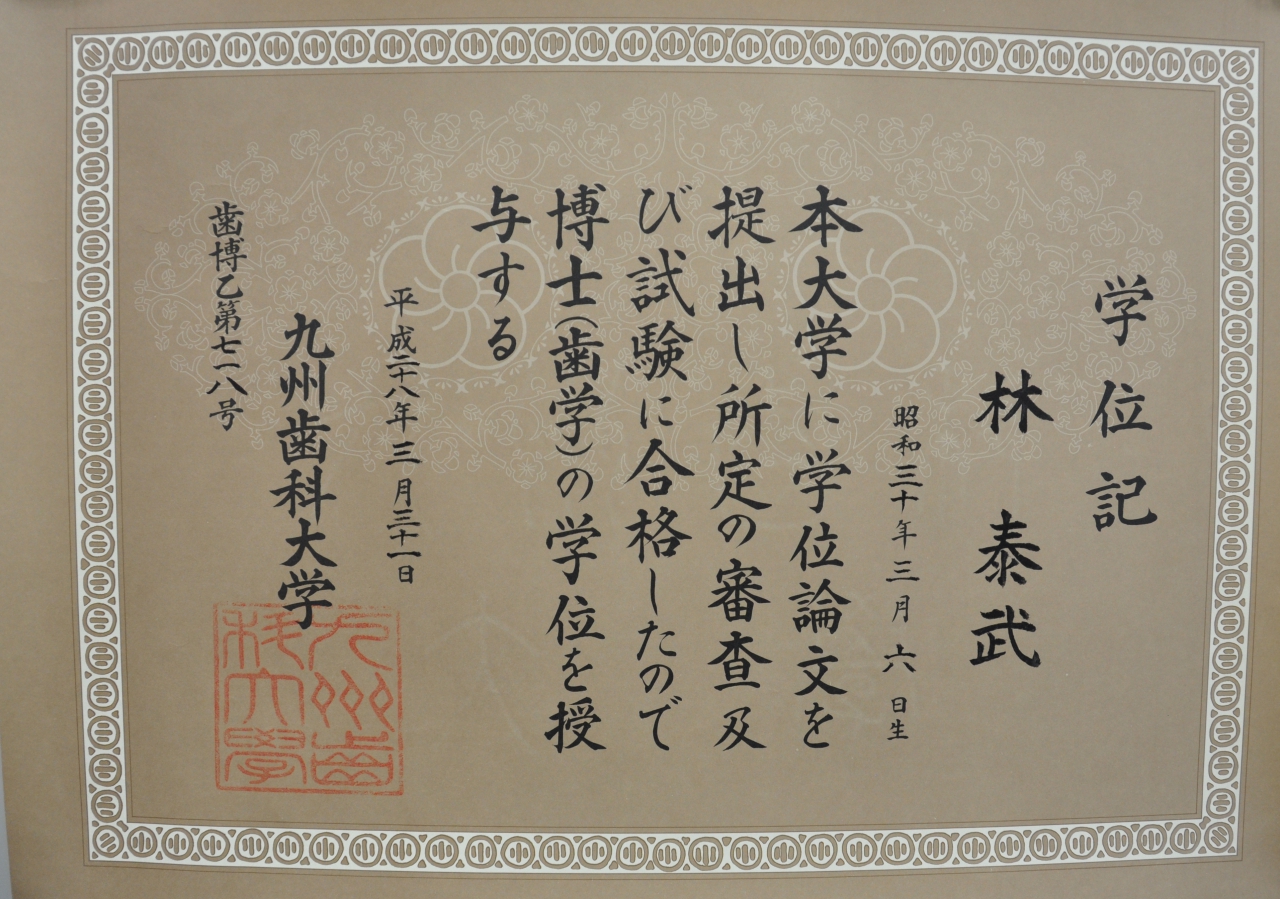 学位記
林 泰武
昭和三十年三月六日生
本大学に学位論文を
提出し所定の審査及
び試験に合格したので
博士(歯学)の学位を授
与する
平成二十八年三月三十一日
九州歯科大学
歯博乙第七一八号
九州齒
科大學